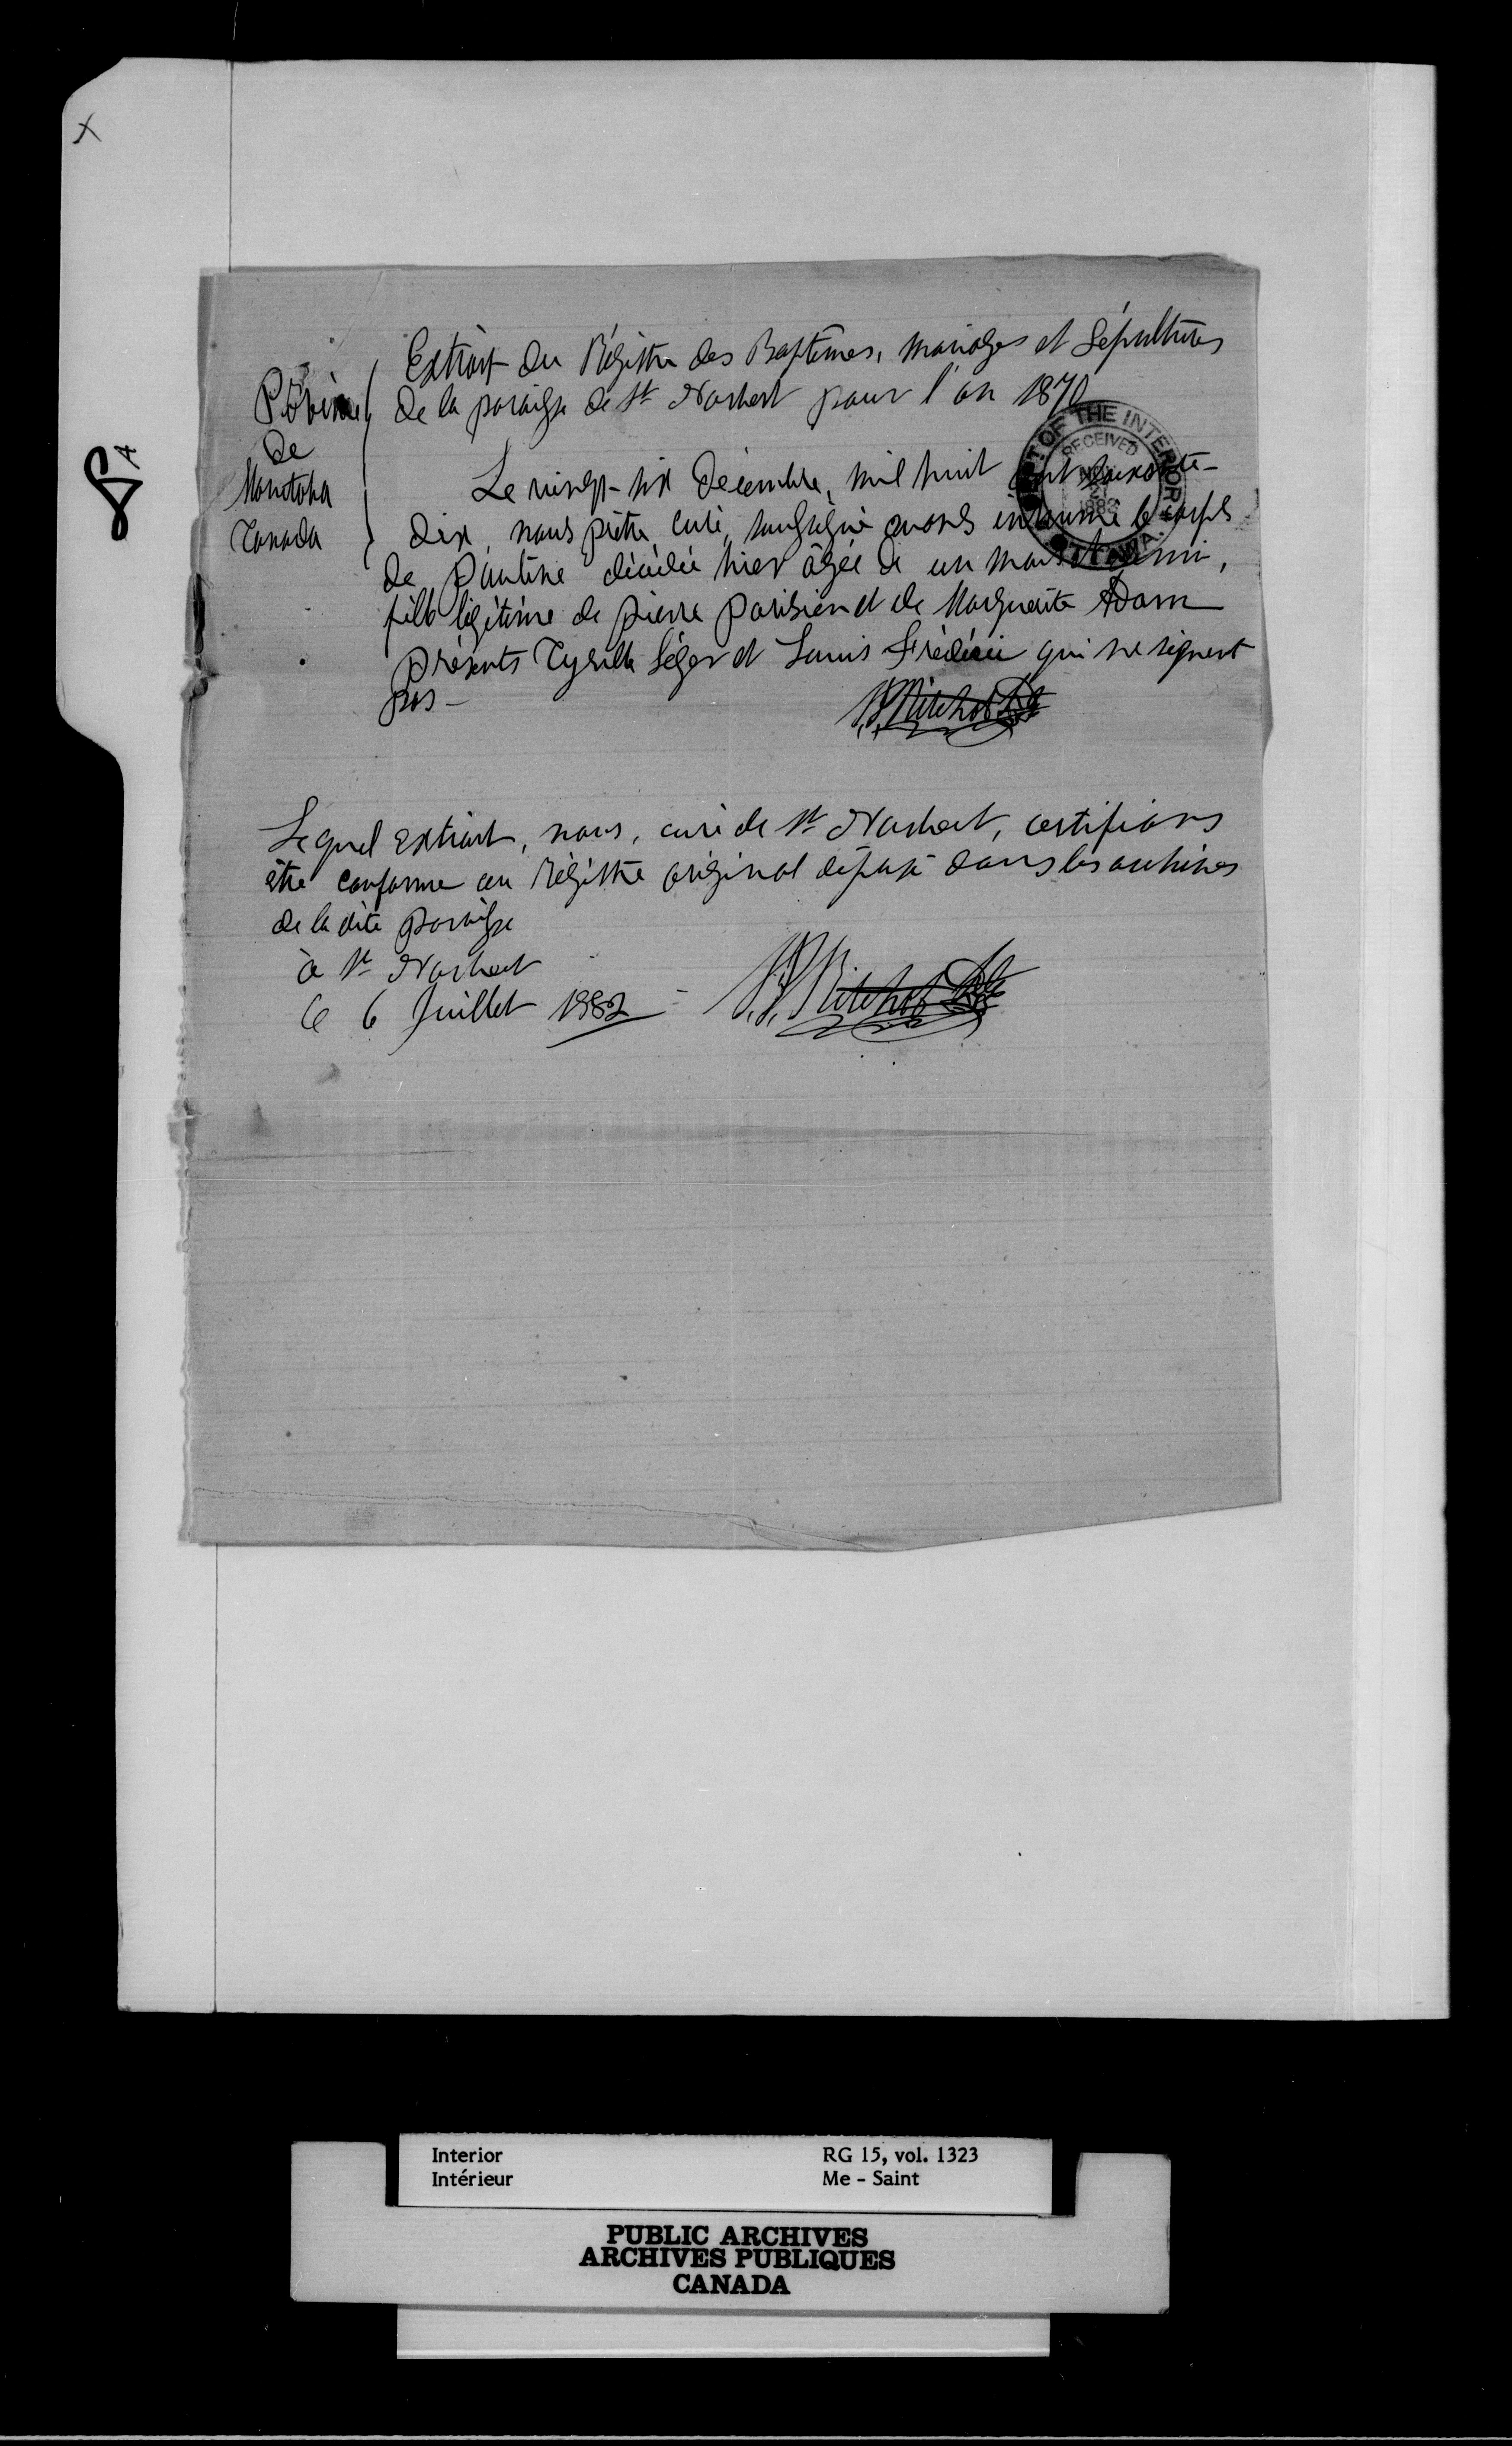 x
Extrait du Régistre des Baptêmes, mariages et Sépultures
de la paroisse de St Norbert pour l'an 1870
Province
de
Manitoba
Canada
DEPT OF THE INTERIOR
RECEIVED
1883
OTTAWA
Le vingt-six Décembre, mil huit cent soixante-
dix, nous prêtre, curé, soussigné avons inhumé le corps
de Pauline décédée hier âgée de un mois et demi,
fille légitime de Pierre Parisien et de Marguerite Adam
présents Cyrille Léger et Louis Frédéric qui ne signent
pas -
Lequel extrait, nous, curé de St Norbert, certifions
être conforme au régistre original déposé dans les archives
de la dite paroisse
à St Norbert
le 6 Juillet 1882 -
Interior
Intérieur
RG 15, vol. 1323
Me - Saint
PUBLIC ARCHIVES
ARCHIVES PUBLIQUES
CANADA